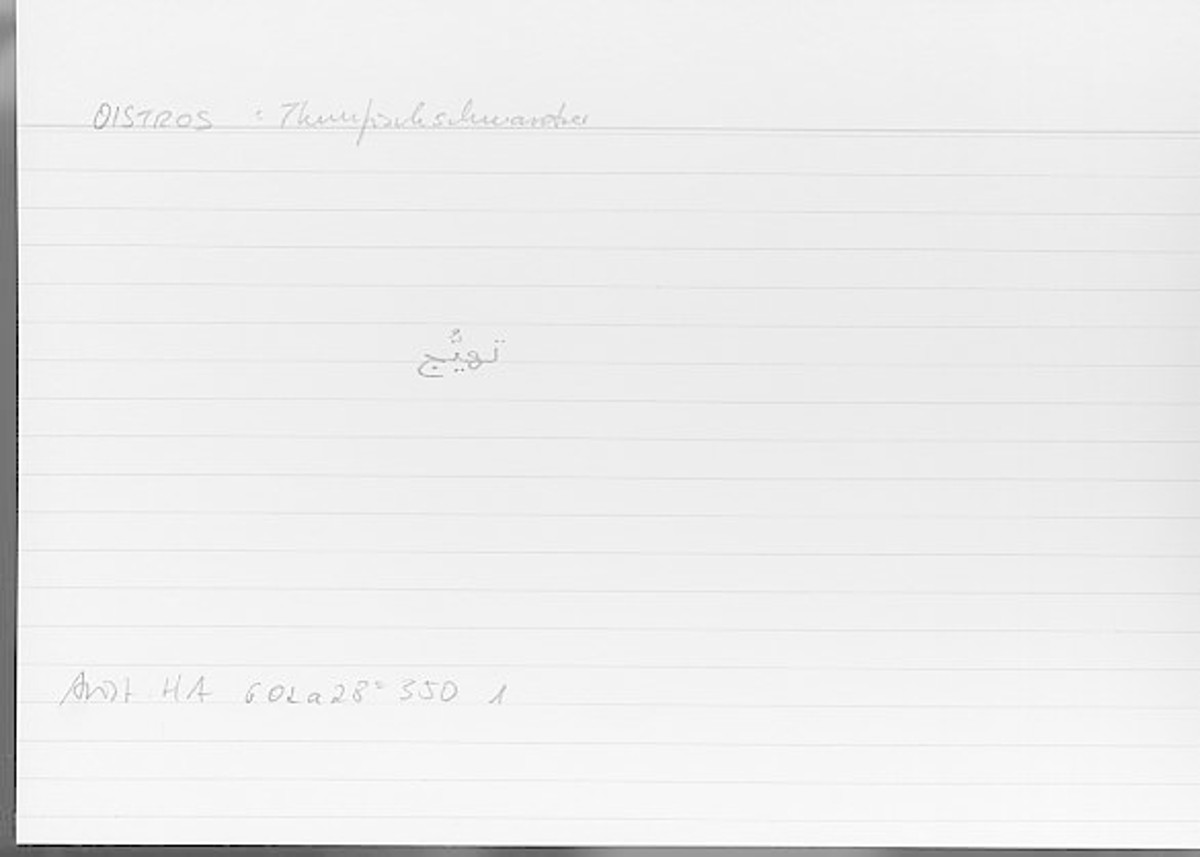 OISTROS : Thunfischschmarotzer
تهيّج
Arist HA 602a28 = 350 1